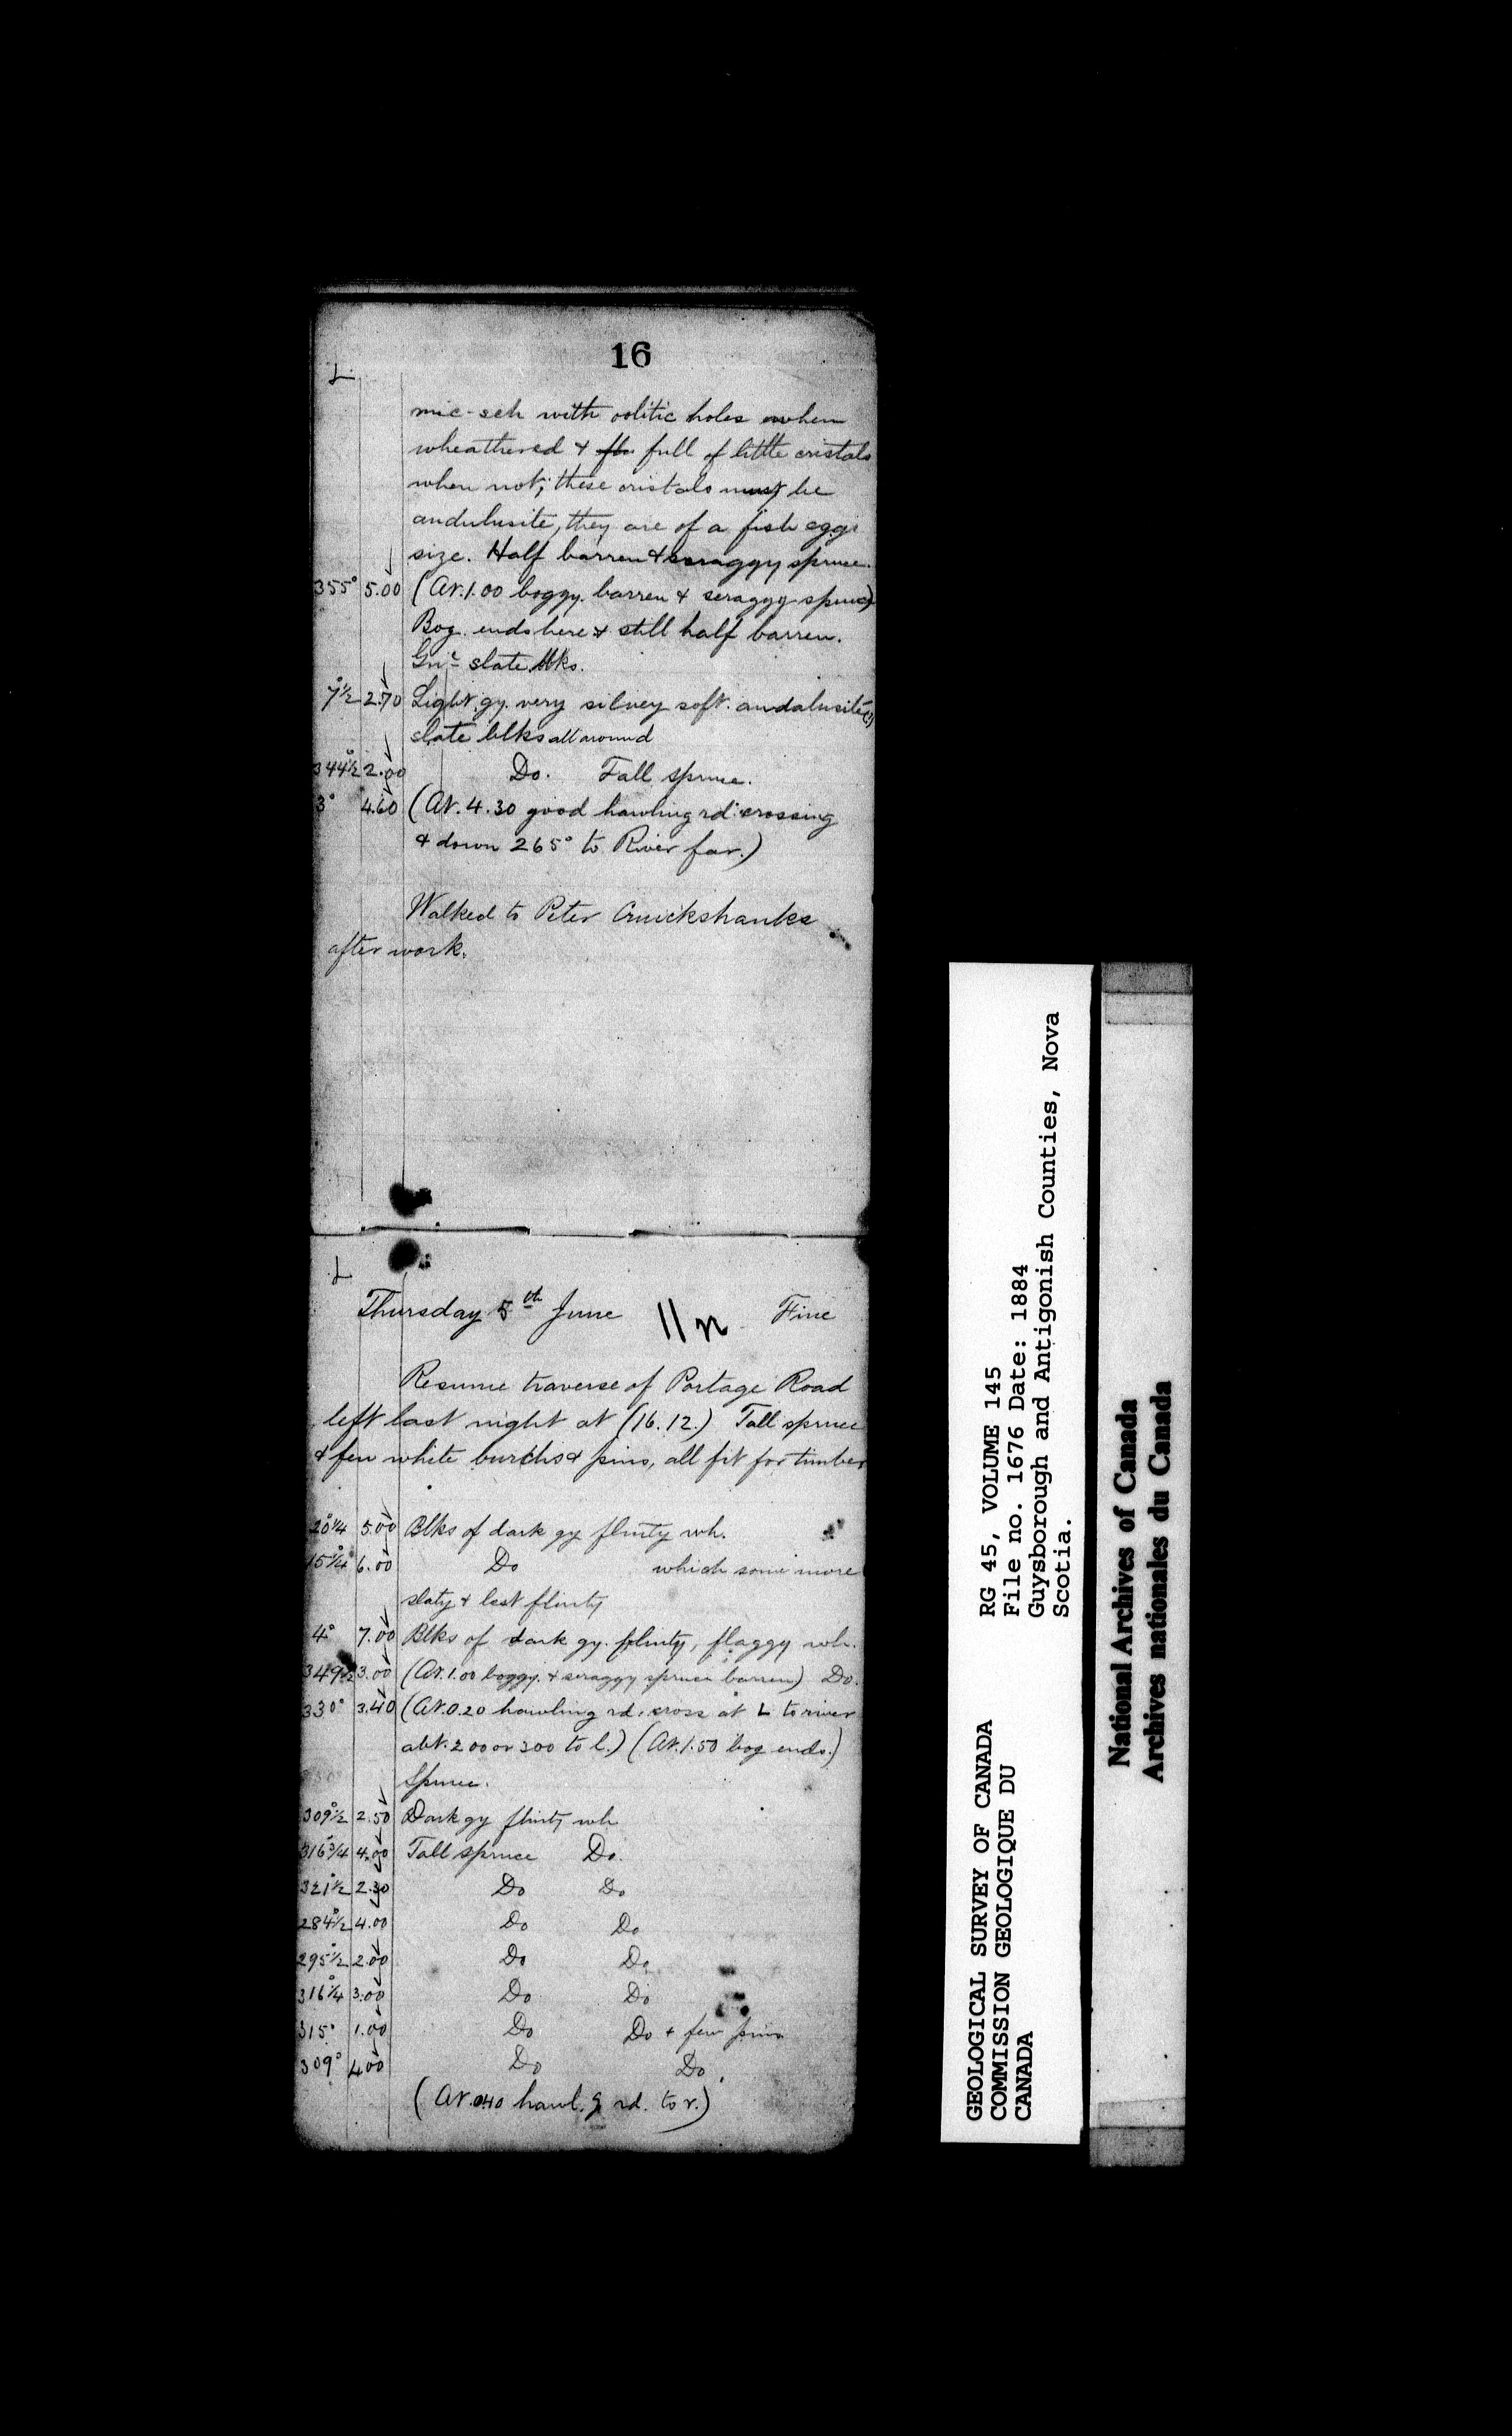 16
L
mic-sch with oolitic holes when
wheathered & full of little cristals
when not; these cristals must be
andulusite, they are of a fish eggs
size. Half barren & scraggy spruce.
355° 5.00 (At 1.00 boggy barren & scraggy spruce)
Bog ends here & still half barren.
slate blks.
7°½ 2.70 Light gy. very silvey soft andalusite (?)
slate blks all around
344°½ 2.00 Do. Tall spruce.
3° 4.60 (At 4.30 good hawling rd crossing
& down 265° to River far.)
Walked to Peter Cruickshanks
after work.
L
Thursday 5th June 11n Fine
Resume traverse of Portage Road
left last night at (16.12.) Tall spruce
& few white burchs & pins, all fit for timber
20°¼ 5.00 Blks of dark gy flinty wh.
15°¼ 6.00 Do which some more
slaty & lest flinty
4° 7.00 Blks of dark gy. flinty, flaggy wh.
349½ 3.00 (At 1.00 boggy & scraggy spruce barren) Do.
330° 3.40 (At 0.20 hawling rd. cross at L to river
abt. 200 or 300 to l.) (At 1.50 bog ends.)
Spruce.
309°½ 2.50 Dark gy flinty wh
316°¾ 4.00 Tall spruce Do.
321°½ 2.30 Do Do
284°½ 4.00 Do Do
295°½ 2.00 Do Do
316°¼ 3.00 Do Do
315° 1.00 Do Do & few pins
309° 4.00 Do Do.
(At 0.40 hawl.g rd. to r.)
GEOLOGICAL SURVEY OF CANADA
COMMISSION GEOLOGIQUE DU
CANADA
RG 45, VOLUME 145
File no. 1676 Date: 1884
Guysborough and Antigonish Counties, Nova
Scotia.
National Archives of Canada
Archives nationales du Canada